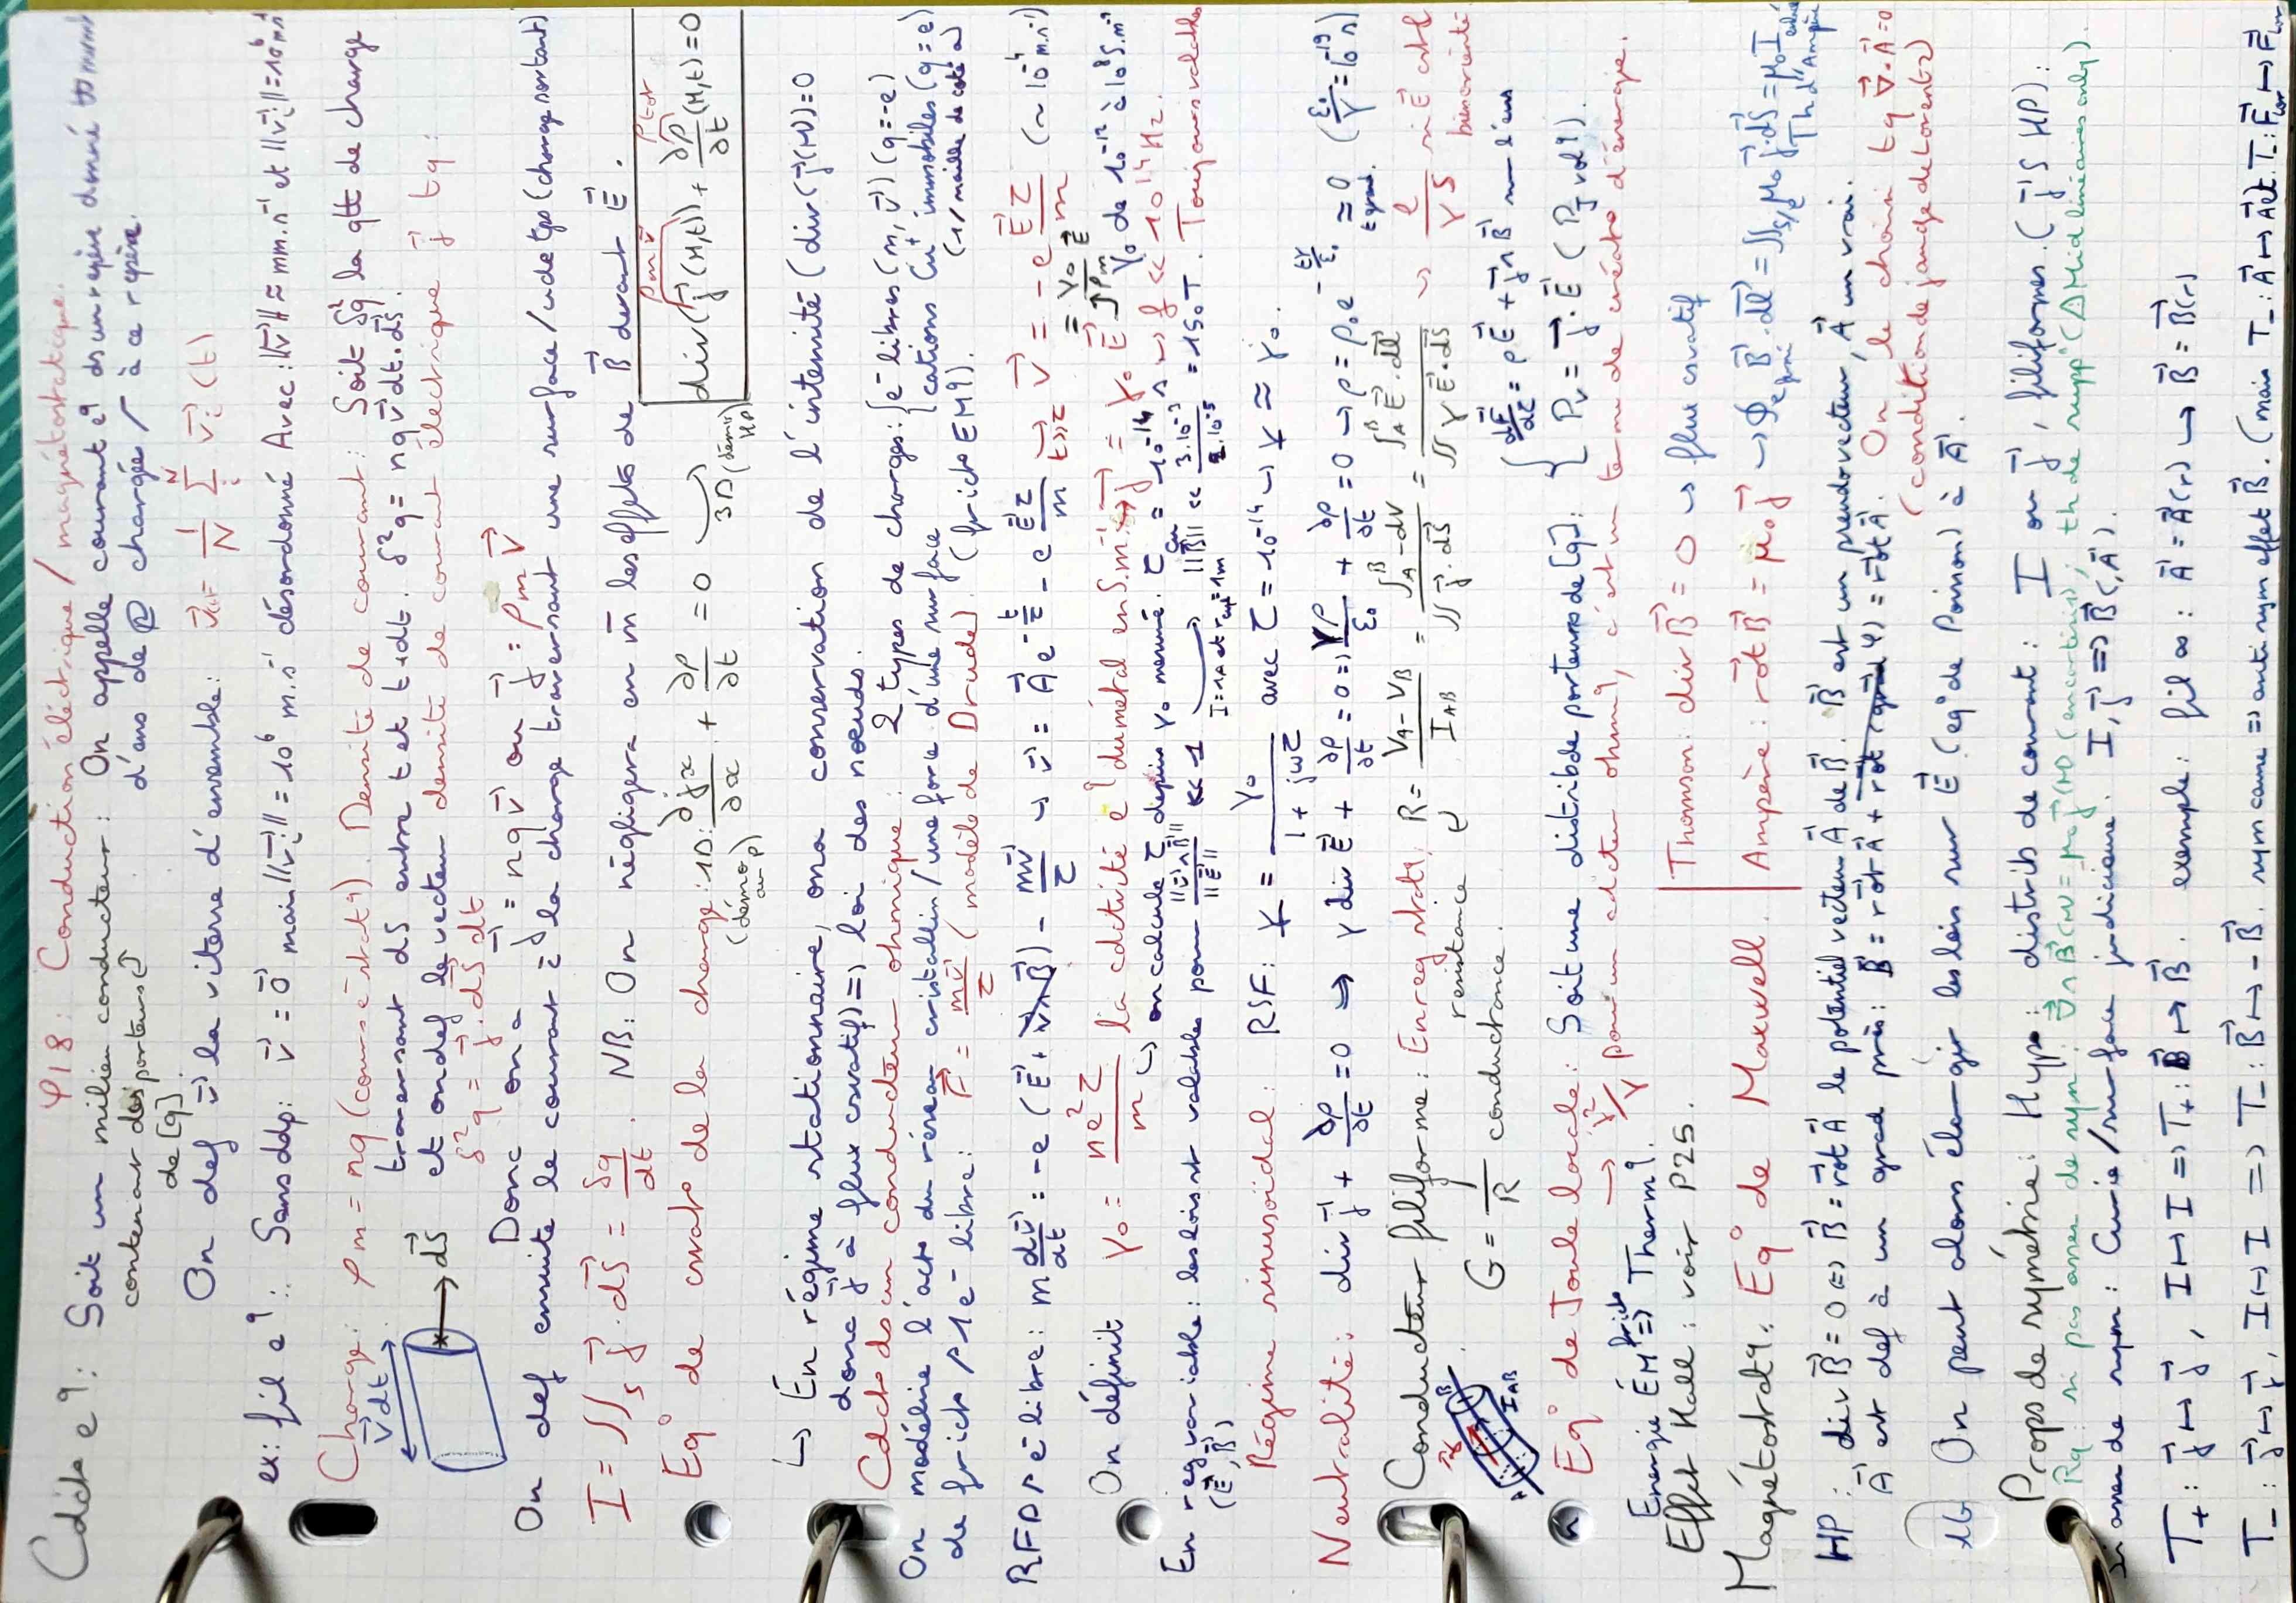 φ18: Conduction électrique / magnétostatique.
Cdcto e9: Soit un milieu conducteur: On appelle courant e9 ds un repère donné tt mvmt
contenant des porteurs de [q] d'ens de chargées / à ce repère.
On def v⃗ la vitesse d'ensemble: v⃗ = 1/N Σ v⃗i (t)
ex: fil e9: Sans ddp: v⃗ = 0⃗ mais ||v⃗i|| = 10⁶ m.s⁻¹ désordonné Avec: ||v⃗|| ≈ mm.s⁻¹ et ||v⃗i|| = 10⁶ m.s⁻¹
Charge: ρm = nq (cours é stat9). Densité de courant: Soit δ²q la qtt de charge
v⃗dt
traversant dS entre t et t+dt. δ²q = nq v⃗dt.dS⃗.
dS⃗
et on def le vecteur densité de courant électrique j⃗ tq:
δ²q = j⃗.dS⃗ dt
Donc on a j⃗ = nq v⃗ ou j⃗ = ρm v⃗
On def ensuite le courant = la charge traversant une surface/u de tps (charge sortant)
I = ∫∫s j⃗.dS⃗ = δq/dt. NB: On négligera en m̄ les effets de B⃗ devant E⃗.
Eq° de cnsrvto de la charge: 1D: ∂jx/∂x + ∂ρ/∂t = 0 3D div(j⃗(M,t)) + ∂ρ/∂t (M,t) = 0
(démo ) (démo HP) ρm v⃗ ρtot
↳ En régime stationnaire, on a conservation de l'intensité (div(j⃗(M))=0
donc j⃗ à flux csvatif) => loi des noeuds.
Cdcto ds un conducteur ohmique: 2 types de charges: { e⁻ libres (m, v⃗) (q=-e)
cations Cu⁺ immobiles (q=e)
(1/maille de coté a)
On modélise l'acto du réseau cristallin/une force d'une surface
de fricto / 1 e⁻ libre: F⃗ = -mv⃗/τ (modèle de Drude). (fricto EM9).
RFD / e⁻ libre: m dv⃗/dt = -e(E⃗ + v⃗∧B⃗) - mv⃗/τ ↪ v⃗ = A⃗ e^(-t/τ) - e E⃗τ/m t>>τ v⃗ = -e E⃗τ/m (~10⁻⁴ m.s⁻¹)
On définit γ₀ = ne²τ/m la cdtivité e9 du métal en S.m⁻¹ → j⃗ = γ₀ E⃗ γ₀ de 10⁻¹² à 10⁸ S.m⁻¹
↪ on calcule τ depuis γ₀ mesuré. τ Cu = 10⁻¹⁴ s ↪ f << 10¹⁴ Hz.
En rég variable: les lois st valables pour ||v⃗∧B⃗||/||E⃗|| << 1 ||B⃗|| << 3.10⁻³/2.10⁻⁵ = 150 T. Toujours valable
(E⃗, B⃗) I=1A et r cup=1m
Régime sinusoïdal: RSF: γ = γ₀/(1 + jωτ) avec τ = 10⁻¹⁴ ↪ γ ≈ γ₀.
Neutralité: div j⃗ + ∂ρ/∂t = 0 ↪ γ div E⃗ + ∂ρ/∂t = 0 => γρ/ε₀ + ∂ρ/∂t = 0 ↪ ρ = ρ₀ e^(-tγ/ε₀) ≈ 0 t grand. (ε₀/γ = 10⁻¹⁹ s)
Conducteur filiforme: En reg stat9, R = (VA - VB)/IAB = ∫A^B -dV / ∫∫ j⃗.dS⃗ = ∫A^B E⃗.dl⃗ / ∫∫ γE⃗.dS⃗ ↪ l/γS si E⃗ est bien orienté
résistance
IAB
G = 1/R conductance.
Eq° de Joule locale: Soit une distrib de porteurs de [q]: { dF⃗/dτ = ρE⃗ + j⃗∧B⃗
Pv = j⃗.E⃗ (PJ vol9).
→ j²/γ pour un cdcteur ohm9, c'est un terme de créato d'énergie.
Energie EM fricto => Therm9.
Effet Hall: voir P25.
Magnétostat9: Eq° de Maxwell | Thomson: div B⃗ = 0 ↪ flux csvatif
| Ampère: rot⃗ B⃗ = μ₀ j⃗ ↪ ∮ B⃗.dl⃗ = ∫∫ μ₀ j⃗.dS⃗ = μ₀ I enlacé
Th d'Ampère
HP: div B⃗ = 0 <=> B⃗ = rot⃗ A⃗ le potentiel vecteur A⃗ de B⃗. B⃗ est un pseudovecteur, A⃗ un vrai.
A⃗ est def à un grad près: B⃗ = rot⃗ A⃗ + rot⃗(grad⃗ φ) = rot⃗ A⃗. On le choisit tq ∇⃗.A⃗ = 0
(condition de jauge de Lorentz)
On peut alors élargir les lois sur E⃗ (eq° de Poisson) à A⃗.
Props de symétrie: Hyp: distrib de courant: I ou j⃗, filiformes. (j⃗S HP):
Rq: si pas assez de sym: v⃗∧B⃗ th de supp° (ΔMilieu linéaires only).
Si assez de sym: Curie/surface judicieuse. I, j⃗ => B⃗(, A⃗).
T₊: j⃗ ↦ j⃗, I ↦ I => T₊: B⃗ ↦ B⃗. exemple: fil ∞: A⃗ = A⃗(r) ↪ B⃗ = B⃗(r)
T₋: j⃗ ↦ j⃗, I ↦ I => T₋: B⃗ ↦ -B⃗. sym cause => antisym effet B⃗. (mais T₋: A⃗ ↦ A⃗ et T₋: F⃗Lor ↦ F⃗Lor